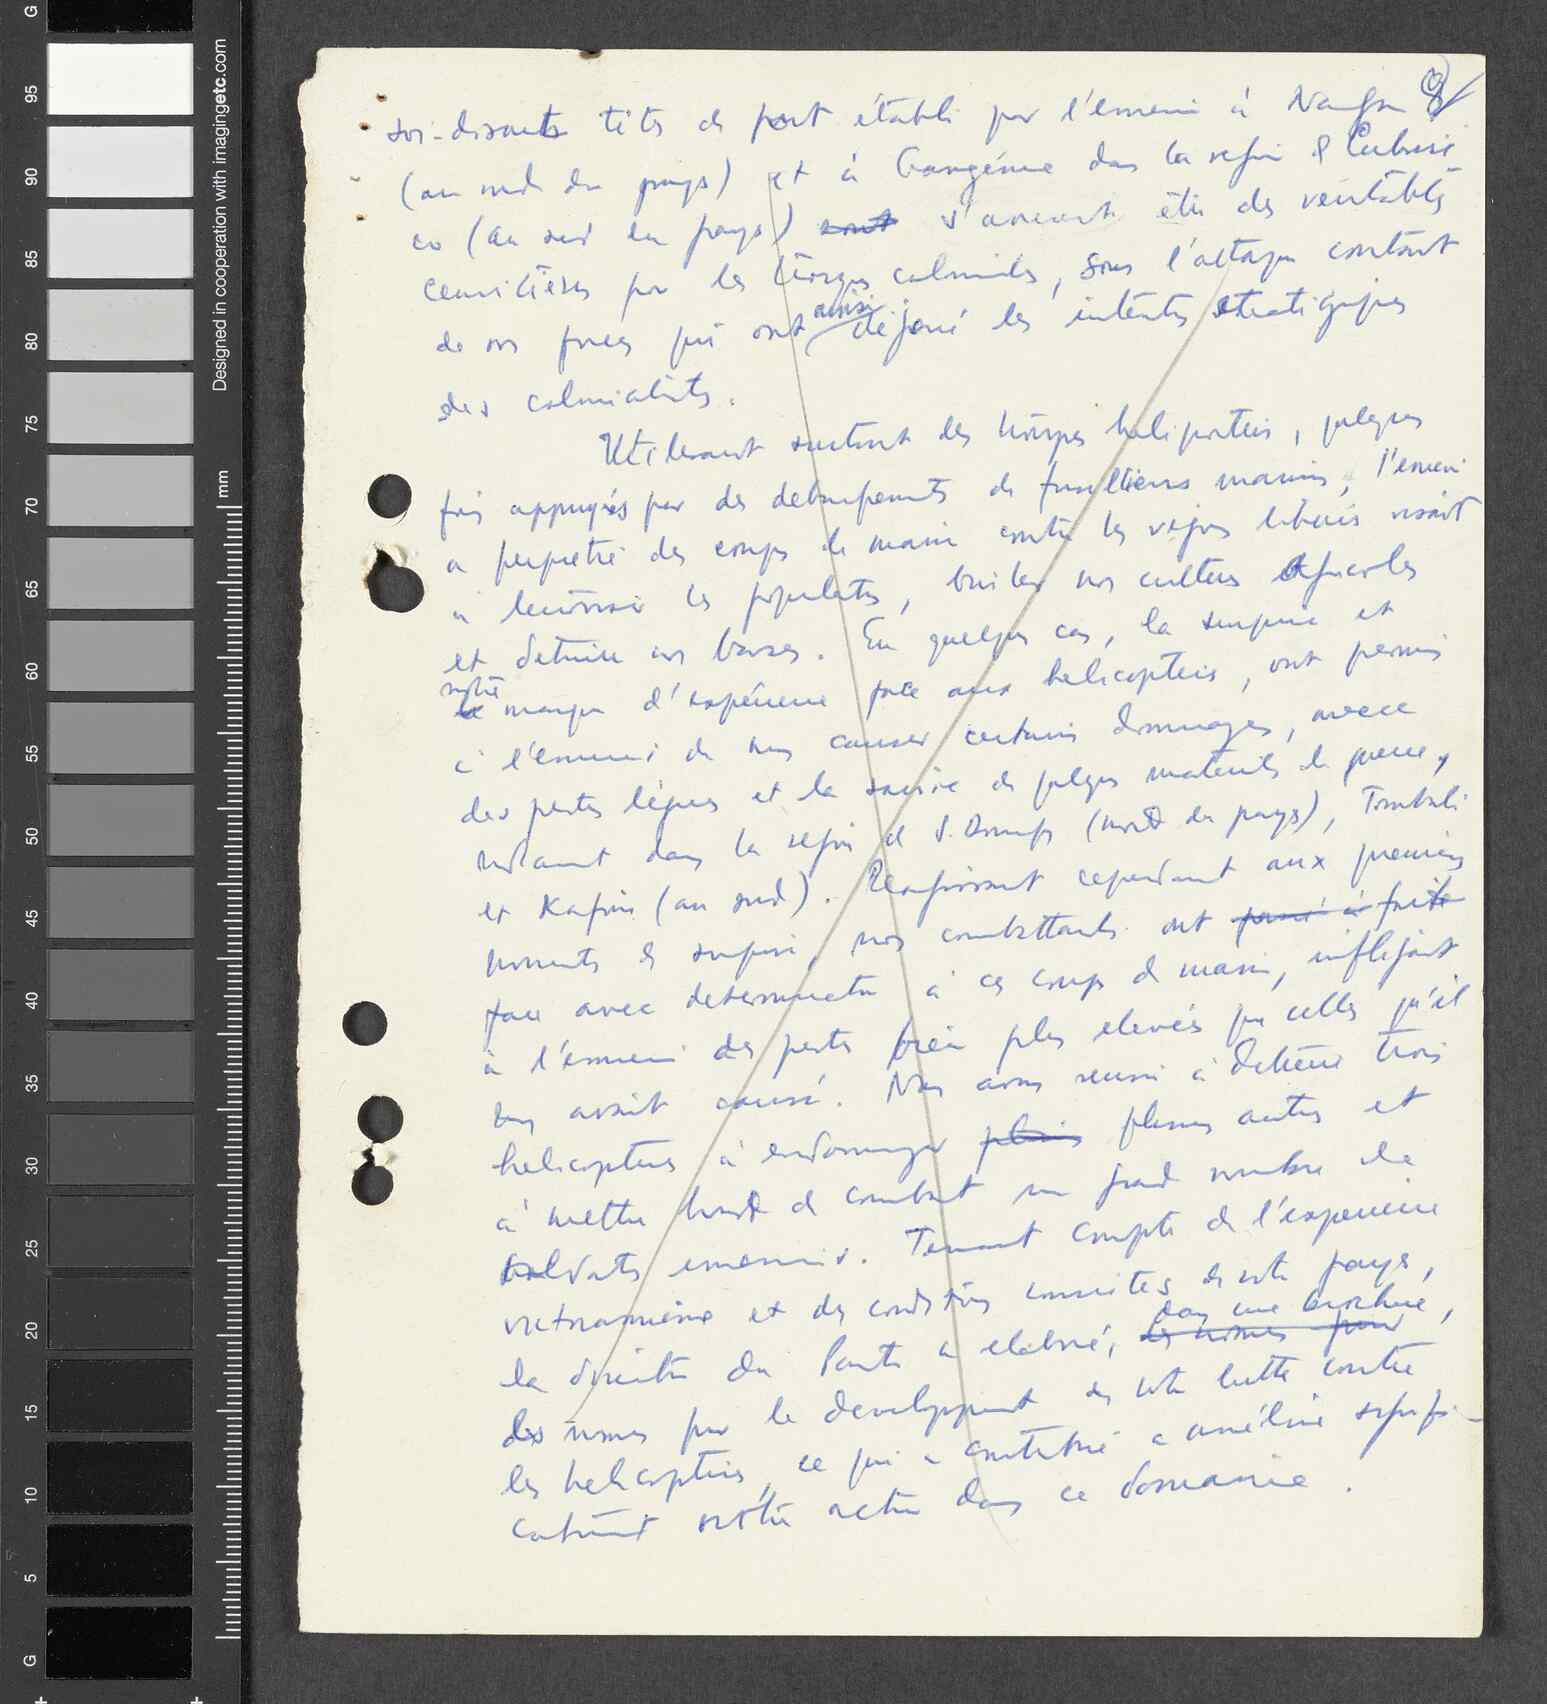 9/
soi-disants têtes de pont établi par l'ennemi à Nafa
(au nord du pays) et à Gangénia dans la région de Cubisé-
co (au sud du pays) sont s'avèrent être des véritables
cimitières pour les troupes coloniales, sous l'attaque constant
de nos forces qui ont ainsi déjoué les intentes strategiques
des colonialistes.
Utilisant surtout des troupes héliportées, quelques
fois appuyés par des debarquements de fusilliers marins, l'ennemi
a perpetré des coups de main contre les régions libérées visant
à terroriser les populations, bruler nos cultures agricoles
et detruire nos bases. En quelques cas, la surprise et
notre le manque d'expérience face aux helicoptères, ont permis
à l'ennemi de nous causer certains dommages, avece
des pertes légères et la saisie de quelques materiels de guerre,
notament dans la région de S. Domingos (nord du pays), Tombali
et Kafine (au sud). Réagissant cependant aux premiers
moments de surprise, nos combattants ont passé à faite
face avec determination à ces coups de main, infligeant
à l'ennemi des pertes bien plus elevées que celles qu'il
nous avait causé. Nous avons reussi à detruire trois
helicoptères à endomager plusieurs autres et
à mettre hors de combat un grand nombre de
soldats ennemis. Tenant compte de l'experience
vietnamienne et des conditions concrètes de notre pays,
la direction du Parti a elaboré, les normes pour dans une brochure,
des normes pour le developpement de notre lutte contre
les helicoptères, ce qui a contribué a améliorer signifi-
cativement notre action dans ce domaine.